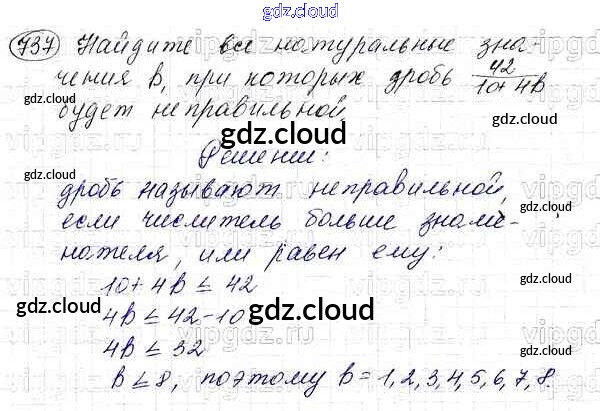 gdz.cloud
737 Найдите все натуральные зна-
чения в, при которых дробь 42/10+4в
будет неправильной.
gdz.cloud
Решение:
gdz.cloud
дробь называют неправильной,
если числитель больше знаме-
gdz.cloud
нателя, или равен ему:
10+4в ≤ 42
gdz.cloud
4в ≤ 42-10
gdz.cloud
4в ≤ 32
gdz.cloud
в ≤ 8, поэтому в = 1,2,3,4,5,6,7,8.
gdz.cloud